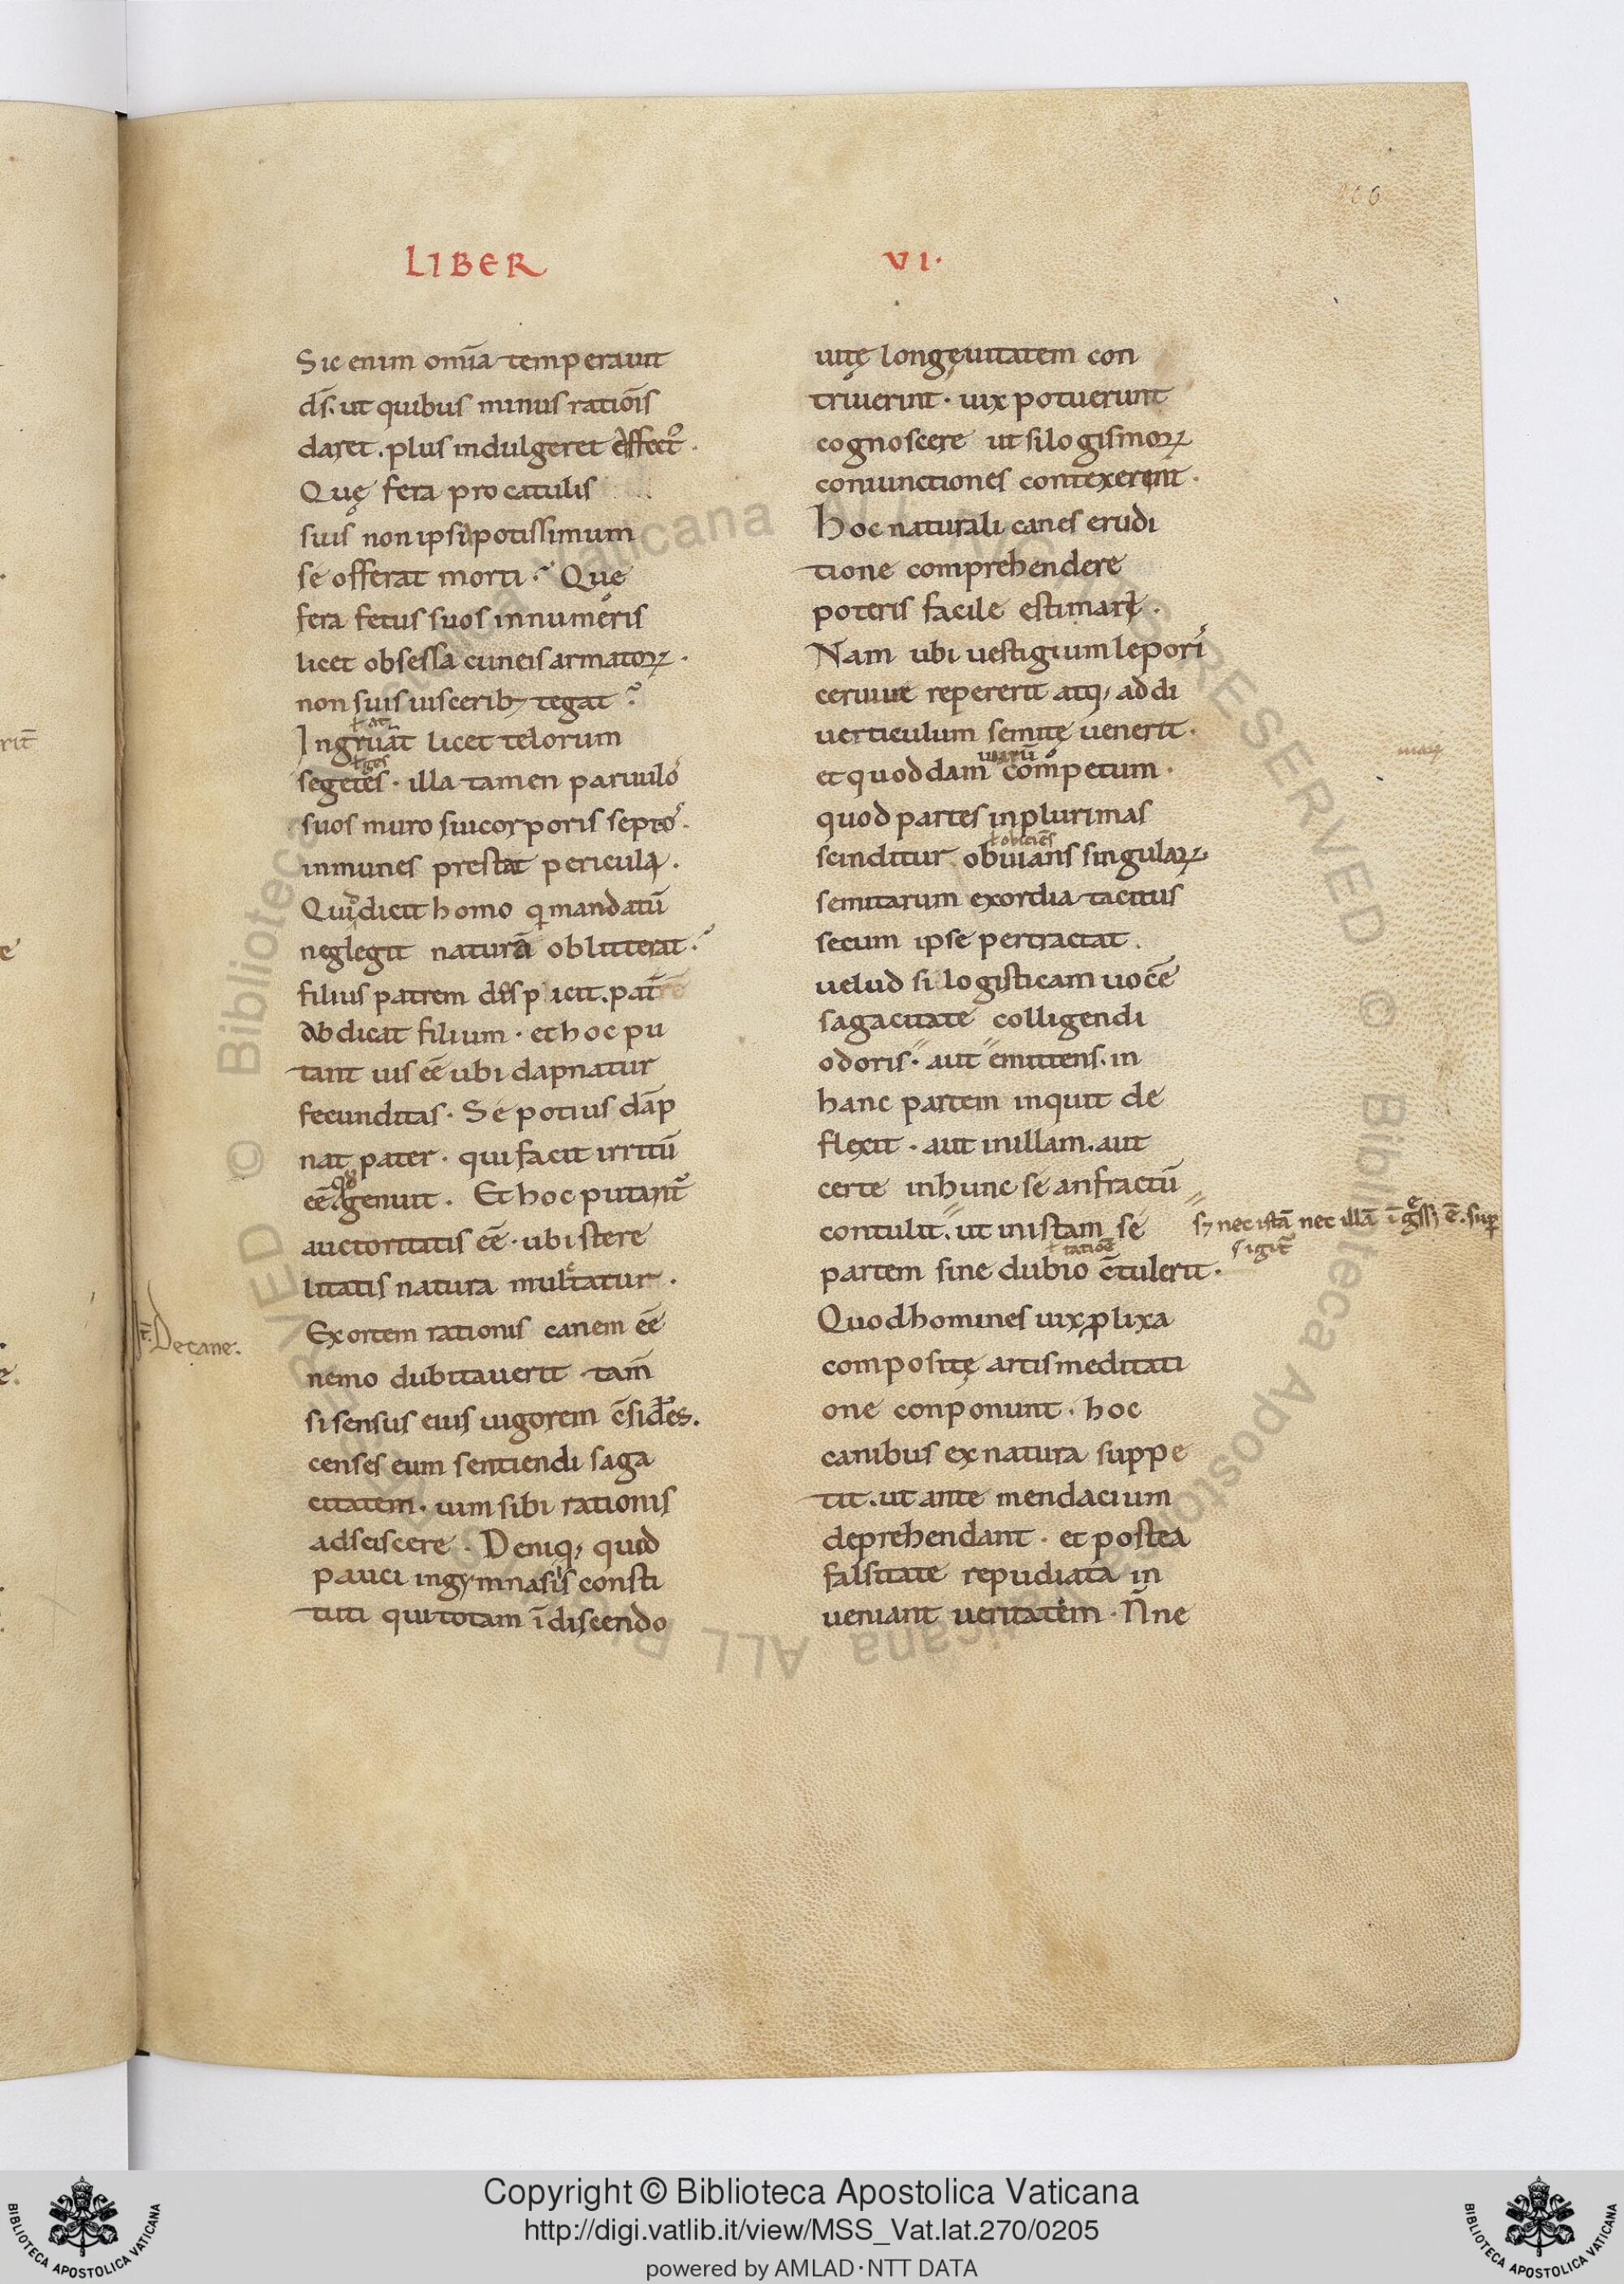 LIBER VI.
Sic enim om̄ia temperauit
d̄s. ut quibus minus ratiōis
daret. plus indulgeret effect᷒.
Quę fera pro catulis
suis non ipsa potissimum
se offerat morti? Que
fera fetus suos innumeris
licet obsessa cuneis armatoꝝ.
non suis uiscerib; tegat?
ł at
Ingruāt licet telorum
ł ges
segetes. illa tamen paruulo
suos muro sui corporis septos.
inmunes prestat pericula.
Quid dicit homo qi mandatū
neglegit naturā oblitterat?
filius patrem despicit. patrē
abdicat filium. et hoc pu
tant ius eē ubi dapnatur
fecunditas. Se potius dāp
nat pater. qui facit irritū
qd
eē genuit. Et hoc putant᷒
auctoritatis eē. ubi stere
litatis natura multatur.
Exortem rationis canem eē
nemo dubitauerit. tam̄
si sensus eius uigorem c̄sideres.
censes eum sentiendi saga
citatem. uim sibi rationis
adsciscere. Deniq; quod
pauci in gymnasiis consti
tuti qui totam ī discendo
De cane.
uitę longęuitatem con
triuerint. uix potuerunt
cognoscere ut silogismoꝝ
coniunctiones contexerent.
hoc naturali canes erudi
tione comprehendere
poteris facile estimare.
Nam ubi uestigium lepori᷒
ceruiue repererit atq; ad di
uerticulum semitę uenerit.
uiarū
et quoddam competum.
quod partes in plurimas
ł obiciēs
scinditur obuians singularꝝ
semitarum exordia tacitus
secum ipse pertractat.
uelud silogisticam uocē
sagacitate colligendi
odoris. aut emittens. in
hanc partem inquit de
flexit. aut in illam. aut
certe in hunc se anfractū
contulit. ut in istam se
s; nec istā nec illā ī g͛ss; ē. sup̱
ł ratiōe
sigit᷒
partem sine dubio c̄tulerit.
Quod homines uix ꝓlixa
compositę artis meditati
one conponunt. hoc
canibus ex natura suppe
tit. ut ante mendacium
deprehendant. et postea
falsitate repudiata in
ueniant ueritatem. N̄ne
Copyright © Biblioteca Apostolica Vaticana
http://digi.vatlib.it/view/MSS_Vat.lat.270/0205
powered by AMLAD·NTT DATA